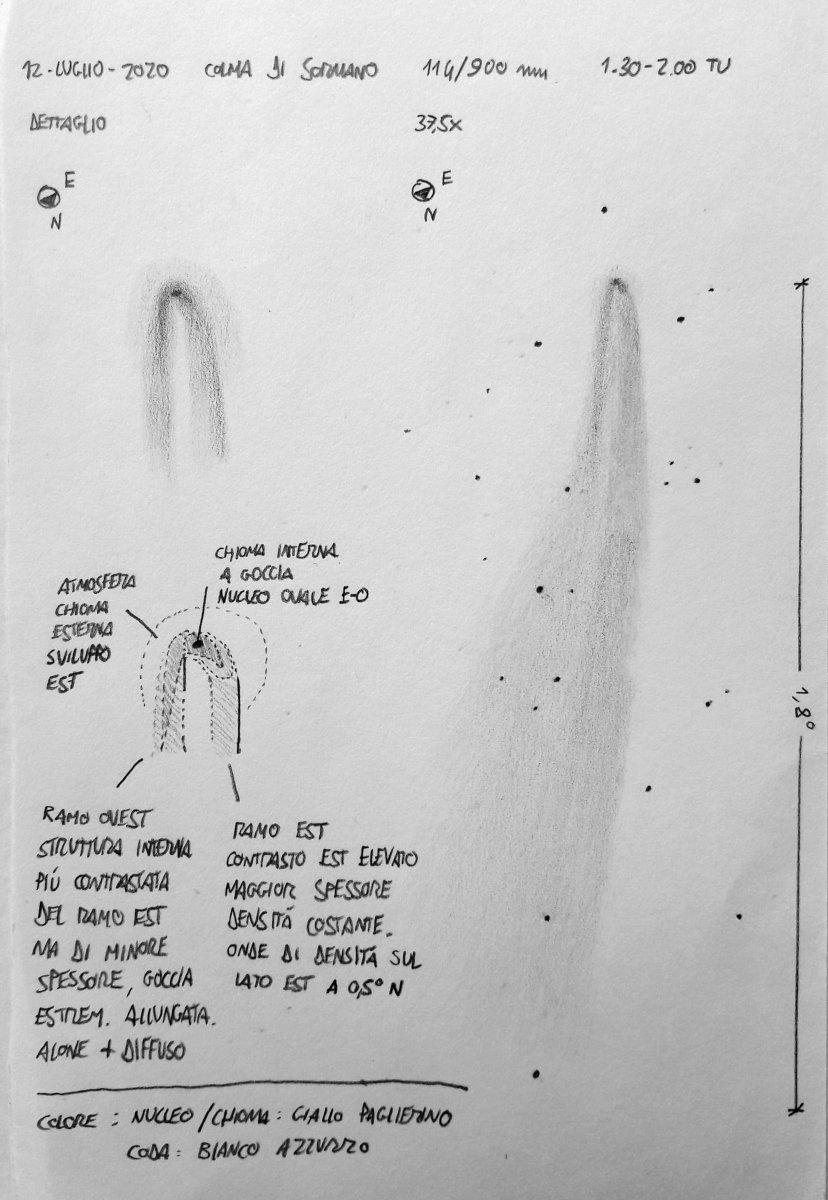 12-LUGLIO-2020 COLMA DI SORMANO 114/900 mm 1.30-2.00 TU
DETTAGLIO 37,5x
E
N
E
N
CHIOMA INTERNA
A GOCCIA
NUCLEO OVALE E-O
ATMOSFERA
CHIOMA
ESTERNA
SVILUPPO
EST
1,8°
RAMO OVEST
STRUTTURA INTERNA
PIÚ CONTRASTATA
DEL RAMO EST
MA DI MINORE
SPESSORE, GOCCIA
ESTREM. ALLUNGATA.
ALONE + DIFFUSO
RAMO EST
CONTRASTO EST ELEVATO
MAGGIOR SPESSORE
DENSITÁ COSTANTE.
ONDE DI DENSITÁ SUL
LATO EST A 0,5° N
COLORE : NUCLEO/CHIOMA: GIALLO PAGLIERINO
CODA: BIANCO AZZURRO